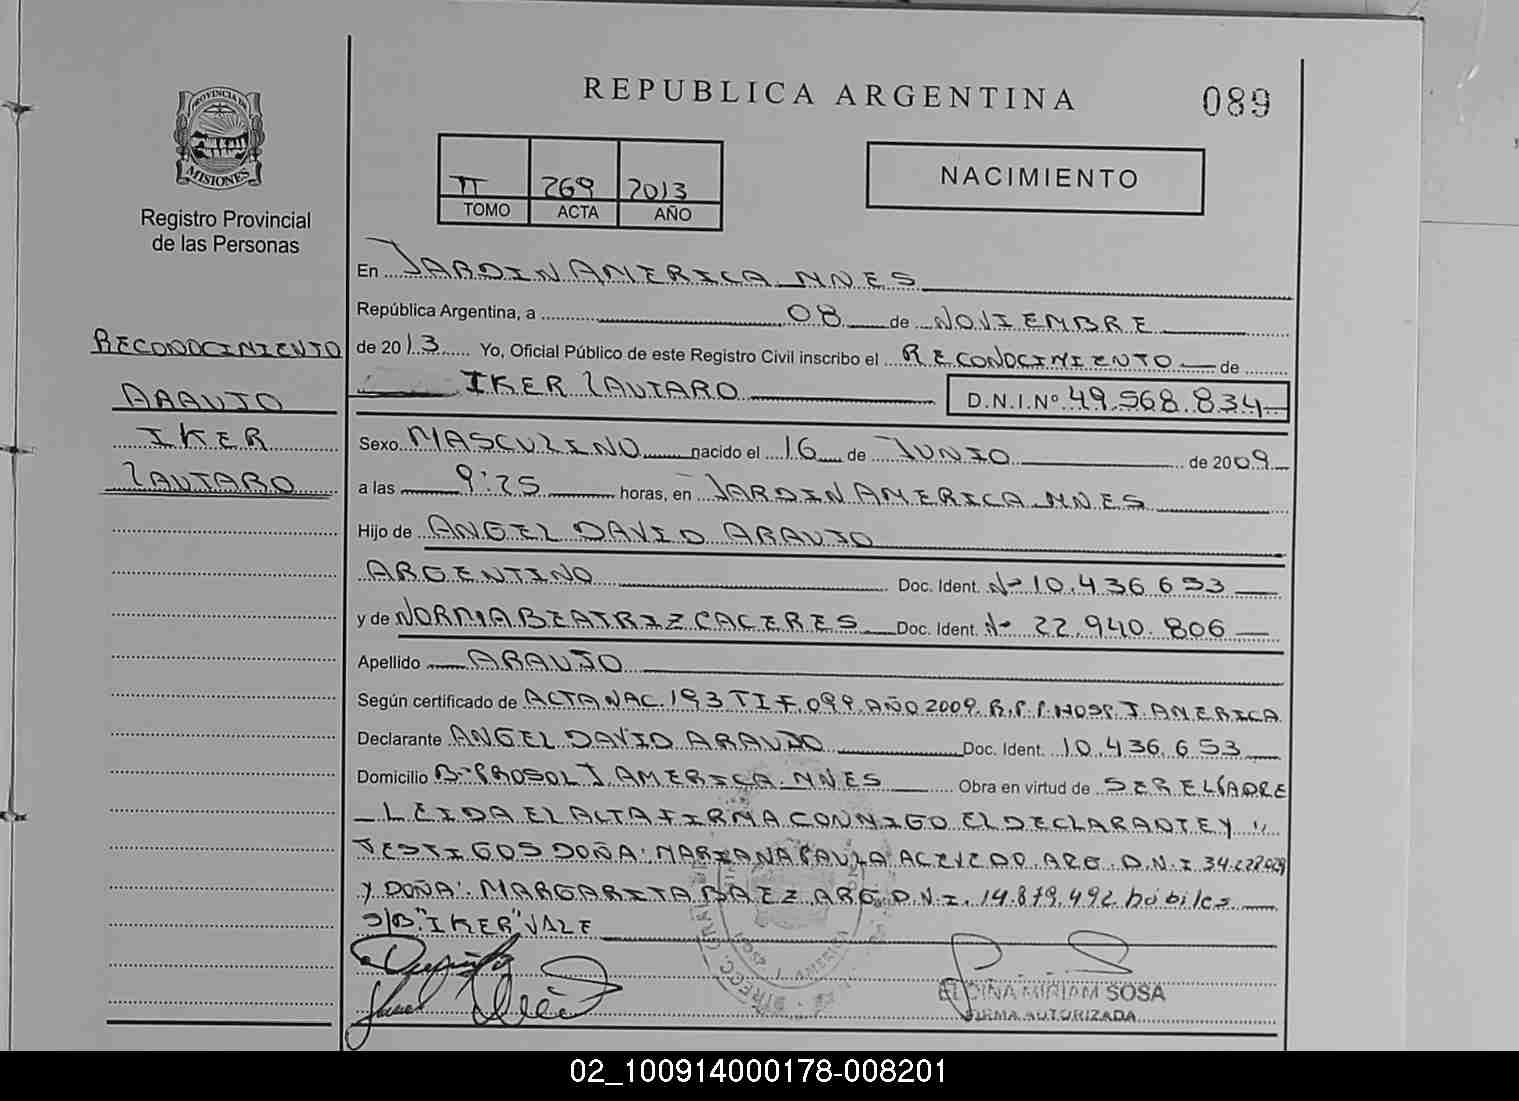 REPUBLICA ARGENTINA
089
PROVINCIA DE
MISIONES
Registro Provincial
de las Personas
II 269 2013
TOMO ACTA AÑO
NACIMIENTO
En JARDIN AMERICA MNES
República Argentina, a 08 de NOVIEMBRE
de 2013 Yo, Oficial Público de este Registro Civil inscribo el RECONOCIMIENTO de
IKER LAUTARO D.N.I.Nº 49.568.834
RECONOCIMIENTO
ARAUJO
IKER
LAUTARO
Sexo MASCULINO nacido el 16 de JUNIO de 2009
a las 9:25 horas, en JARDIN AMERICA MNES
Hijo de ANGEL DAVID ARAUJO
ARGENTINO Doc. Ident. Nº 10.436.653
y de NORMA BEATRIZ CACERES Doc. Ident. Nº 22.940.806
Apellido ARAUJO
Según certificado de ACTA NAC. 193 T I F. 099 AÑO 2009 R.P.P. HOSP. J. AMERICA
Declarante ANGEL DAVID ARAUJO Doc. Ident. 10.436.653
Domicilio Bº PROSOL J. AMERICA. MNES Obra en virtud de SER EL PADRE
LEIDA EL ACTA FIRMA CONMIGO EL DECLARANTE Y
TESTIGOS DOÑA: MARIANA PAULA ACEVEDO ARG. D.N.I.
Y DOÑA: MARGARITA BAEZ ARG. D.N.I. 14.879.492 hábiles
S/B "IKER" VALE
MIRIAM SOSA
FIRMA AUTORIZADA
02_100914000178-008201